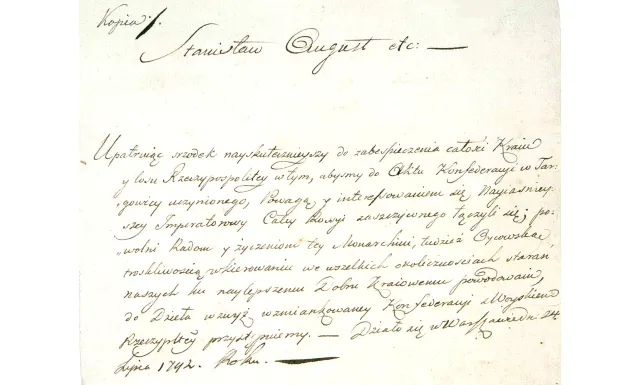 Kopia ./.
Stanisław August etc: —
Upatruiąc srzodek nayskutecznieyszy do zabespieczenia całości Kraiu
y losu Rzeczypospolitey w tym, abysmy do Aktu Konfederacyi w Tar,
gowicy uczynionego, Powagą y interessowaniem się Nayiasniey,
szey Imperatorowy Całey Rossyi zaszczyconego łączyli się; po,
wolni Radom y życzeniom tey Monarchini, tudzież Oycowską
troskliwoscią w kierowaniu we wszelkich okolicznosciach staran
naszych ku naylepszemu Dobru Kraiowemu powodowani,
do Dzieła wzwyż wzmiankowaney Konfederacyi z Woyskiem
Rzeczyplitey przystępuiemy. — Działo się w Warszawie dn 24
Lipca 1792. Roku. —